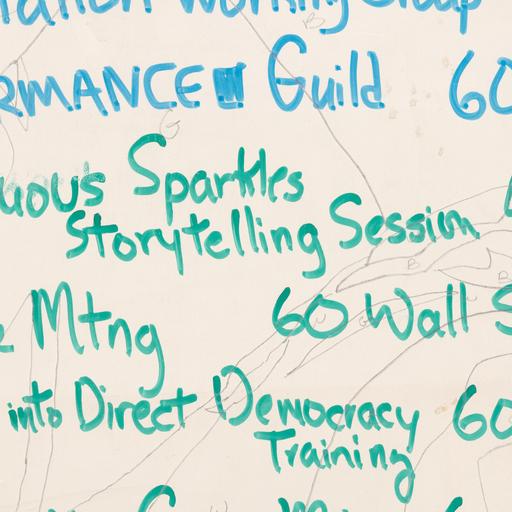 Working Group
RMANCE Guild 60
uous Sparkles
Storytelling Session
Mtng 60 Wall S
into Direct Democracy 60
Training